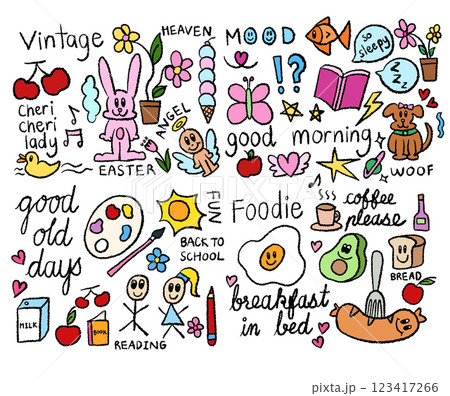 Vintage
HEAVEN
cheri
cheri
lady
EASTER
ANGEL
MOOD
so
sleepy
zzz
!?
good morning
WOOF
good
old
days
FUN
BACK TO
SCHOOL
MILK
BOOK
READING
Foodie
coffee
please
BREAD
breakfast
in bed
PIXTA
123417266